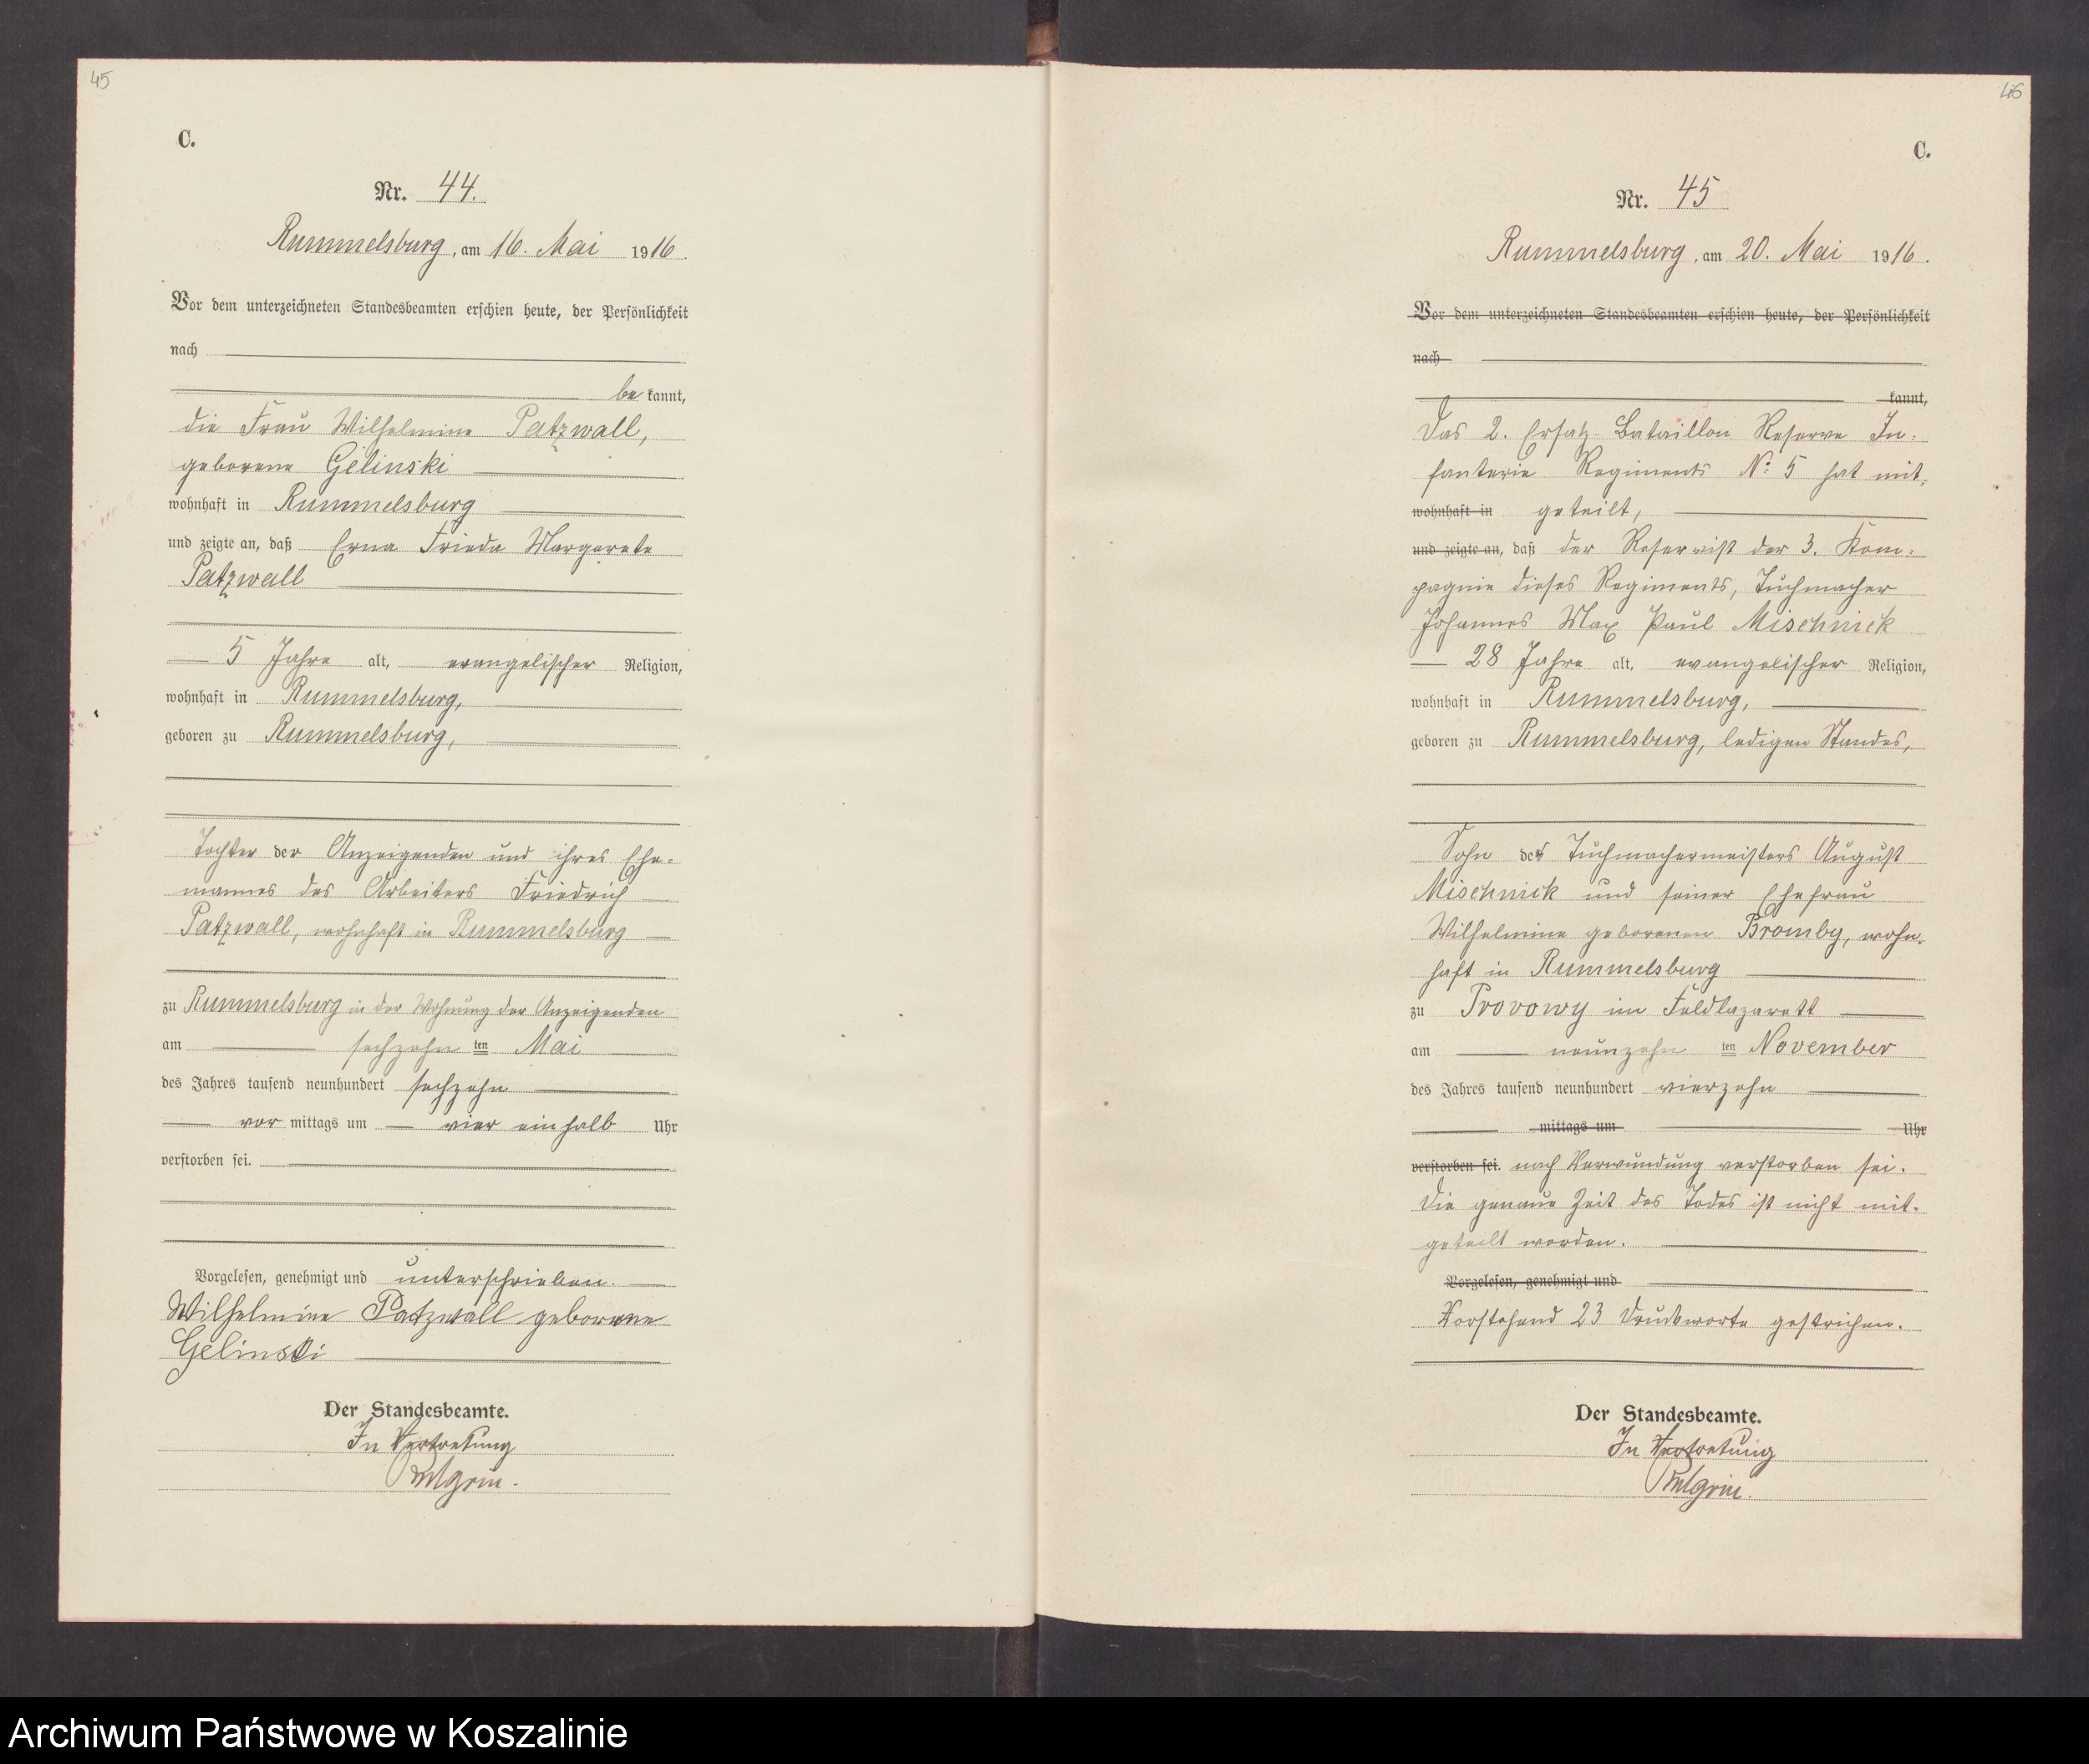 45
C.
Nr. 44.
Rummelsburg, am 16. Mai 1916.
Vor dem unterzeichneten Standesbeamten erschien heute, der Persönlichkeit
nach
be kannt,
die Frau Wilhelmine Patzwall,
geborene Gelinski
wohnhaft in Rummelsburg
und zeigte an, daß Erna Frieda Margarete
Patzwall
5 Jahre alt, evangelischer Religion,
wohnhaft in Rummelsburg,
geboren zu Rummelsburg,
Tochter der Anzeigenden und ihres Ehe-
mannes des Arbeiters Friedrich
Patzwall, wohnhaft in Rummelsburg
zu Rummelsburg in der Wohnung der Anzeigenden
am sechzehn ten Mai
des Jahres tausend neunhundert sechzehn
vor mittags um vier einhalb Uhr
verstorben sei.
Vorgelesen, genehmigt und unterschrieben.
Wilhelmine Patzwall geborene
Gelinski
Der Standesbeamte.
In Vertretung
46
C.
Nr. 45
Rummelsburg, am 20. Mai 1916.
Vor dem unterzeichneten Standesbeamten erschien heute, der Persönlichkeit
nach
kannt,
Das 2. Ersatz-Bataillon Reserve In-
fanterie Regiments No 5 hat mit-
wohnhaft in geteilt,
und zeigte an, daß der Reservist der 3. Kom-
pagnie dieses Regiments, Tuchmacher
Johannes Max Paul Mischnick
28 Jahre alt, evangelischer Religion,
wohnhaft in Rummelsburg,
geboren zu Rummelsburg, ledigen Standes,
Sohn des Tuchmachermeisters August
Mischnick und seiner Ehefrau
Wilhelmine geborenen Bromby, wohn-
haft in Rummelsburg
zu Provowy im Feldlazarett
am neunzehn ten November
des Jahres tausend neunhundert vierzehn
mittags um Uhr
verstorben sei. nach Verwundung verstorben sei.
Die genaue Zeit des Todes ist nicht mit-
geteilt worden.
Vorgelesen, genehmigt und
Vorstehend 23 Druckworte gestrichen.
Der Standesbeamte.
In Vertretung
Archiwum Państwowe w Koszalinie